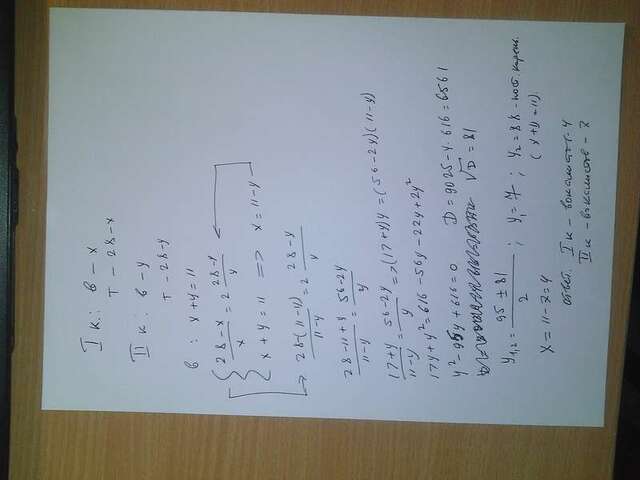 I к: в - x
т - 28-x
II к: в - y
т - 28-y
в: x+y=11
{ (28-x)/x = 2 (28-y)/y
x+y=11 => x=11-y
(28-(11-y))/(11-y) = 2 (28-y)/y
(28-11+y)/(11-y) = (56-2y)/y
(17+y)/(11-y) = (56-2y)/y => (17+y)y=(56-2y)(11-y)
17y+y²=616-56y-22y+2y²
y²-95y+616=0 D=9025-4·616=6561
√D=81
y₁,₂= (95±81)/2 ; y₁=7 ; y₂=88 - пост. корень
(x+y=11).
x=11-7=4
ответ. I к - вокалистов-4
II к - вокалистов - 7